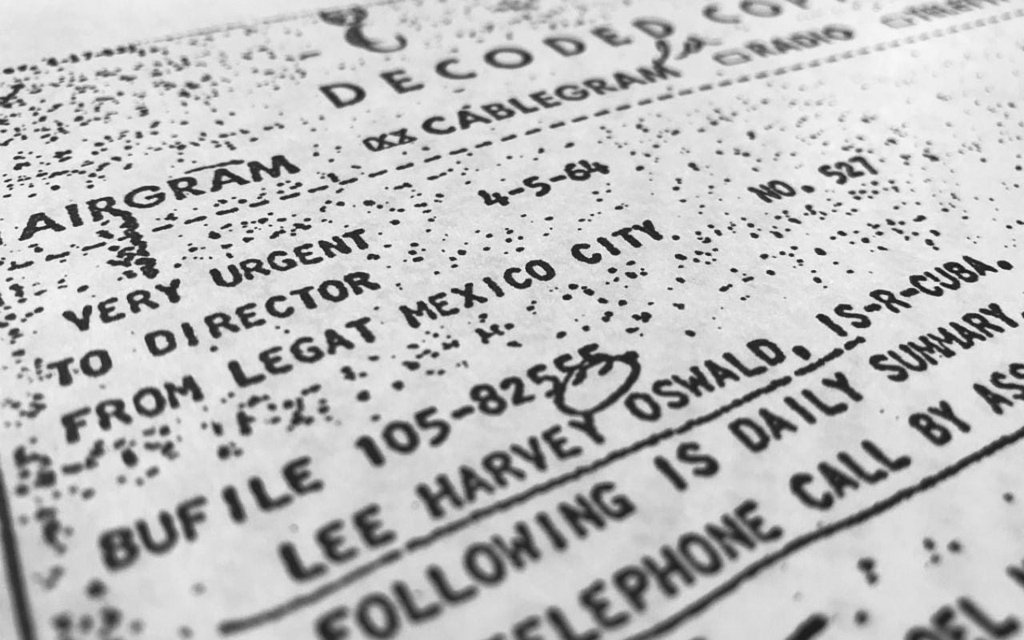 DECODED COP
AIRGRAM ☒XX CABLEGRAM ☐ RADIO
VERY URGENT 4-5-64 NO. 527
TO DIRECTOR
FROM LEGAT MEXICO CITY
BUFILE 105-82555
LEE HARVEY OSWALD, IS-R-CUBA.
FOLLOWING IS DAILY SUMMARY.
TELEPHONE CALL BY ASS